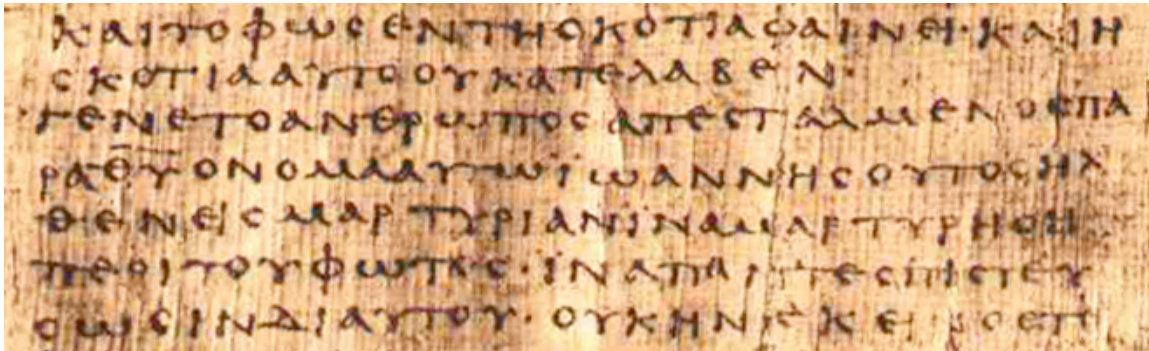 ΚΑΙΤΟΦΩϹΕΝΤΗϹΚΟΤΙΑΦΑΙΝΕΙ·ΚΑΙΗ
ϹΚΟΤΙΑΑΥΤΟΟΥΚΑΤΕΛΑΒΕΝ·
ΓΕΝΕΤΟΑΝΘΡΩΠΟϹΑΠΕϹΤΑΛΜΕΝΟϹΠΑ
ΡΑΘ̅Υ̅ΟΝΟΜΑΑΥΤΩΪΩΑΝΝΗϹΟΥΤΟϹΗΛ
ΘΕΝΕΙϹΜΑΡΤΥΡΙΑΝΪΝΑΜΑΡΤΥΡΗϹΗ
ΠΕΡΙΤΟΥΦΩΤΟϹ·ΪΝΑΠΑΝΤΕϹΠΙϹΤΕΥ
ϹΩϹΙΝΔΙΑΥΤΟΥ·ΟΥΚΗΝ